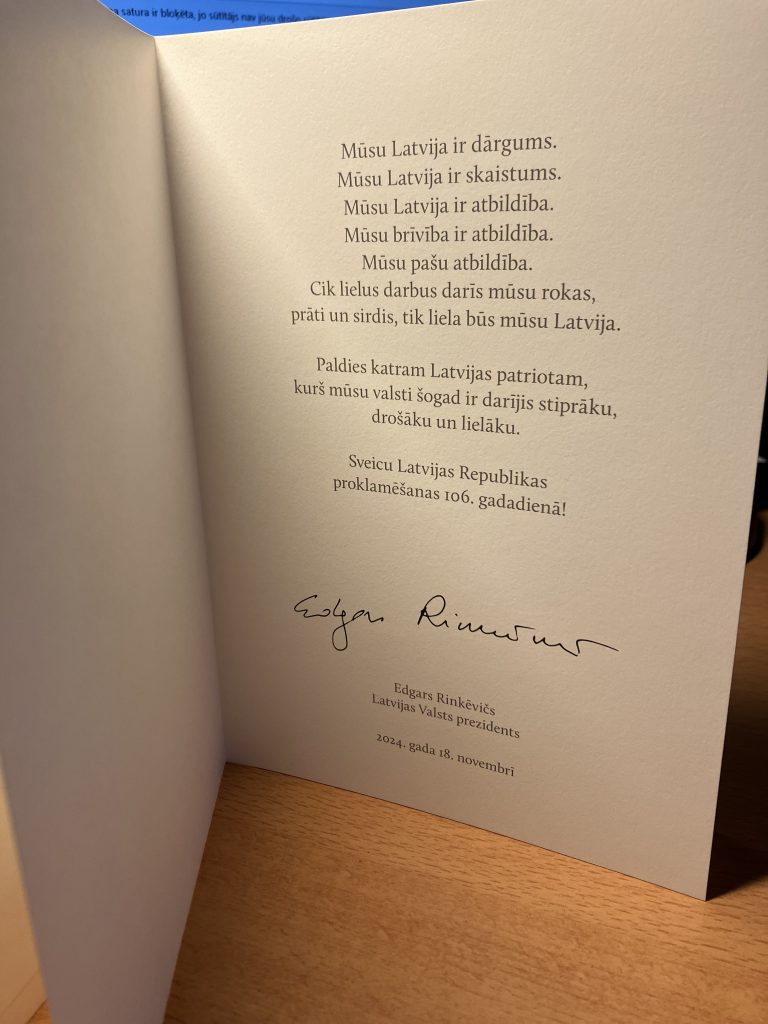 satura ir bloķēta, jo sūtītājs nav jūsu
Mūsu Latvija ir dārgums.
Mūsu Latvija ir skaistums.
Mūsu Latvija ir atbildība.
Mūsu brīvība ir atbildība.
Mūsu pašu atbildība.
Cik lielus darbus darīs mūsu rokas,
prāti un sirdis, tik liela būs mūsu Latvija.
Paldies katram Latvijas patriotam,
kurš mūsu valsti šogad ir darījis stiprāku,
drošāku un lielāku.
Sveicu Latvijas Republikas
proklamēšanas 106. gadadienā!
Edgars Rinkēvičs
Edgars Rinkēvičs
Latvijas Valsts prezidents
2024. gada 18. novembrī